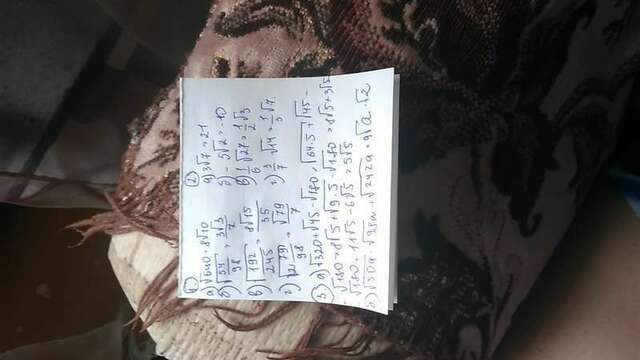 ①
а) √640 = 8√10
б) √54/98 = 3√3/7
в) √192/245 = 8√15/35
г) √2 79/98 = √79/7
②
а) 3√7 = 21
б) - 5√2 = -10
в) 1/6 √27 = 1/2 √3
г) 3/7 √14 = 1/3 √7
③ а) √320 + √45 - √180 = √64·5 + √45 -
- √180 = 8√5 + √9·5 - √180 = 8√5 + 3√5
- √180 = 11√5 - 6√5 = 5√5
√50a - √98a + √242a = 9√a · √2